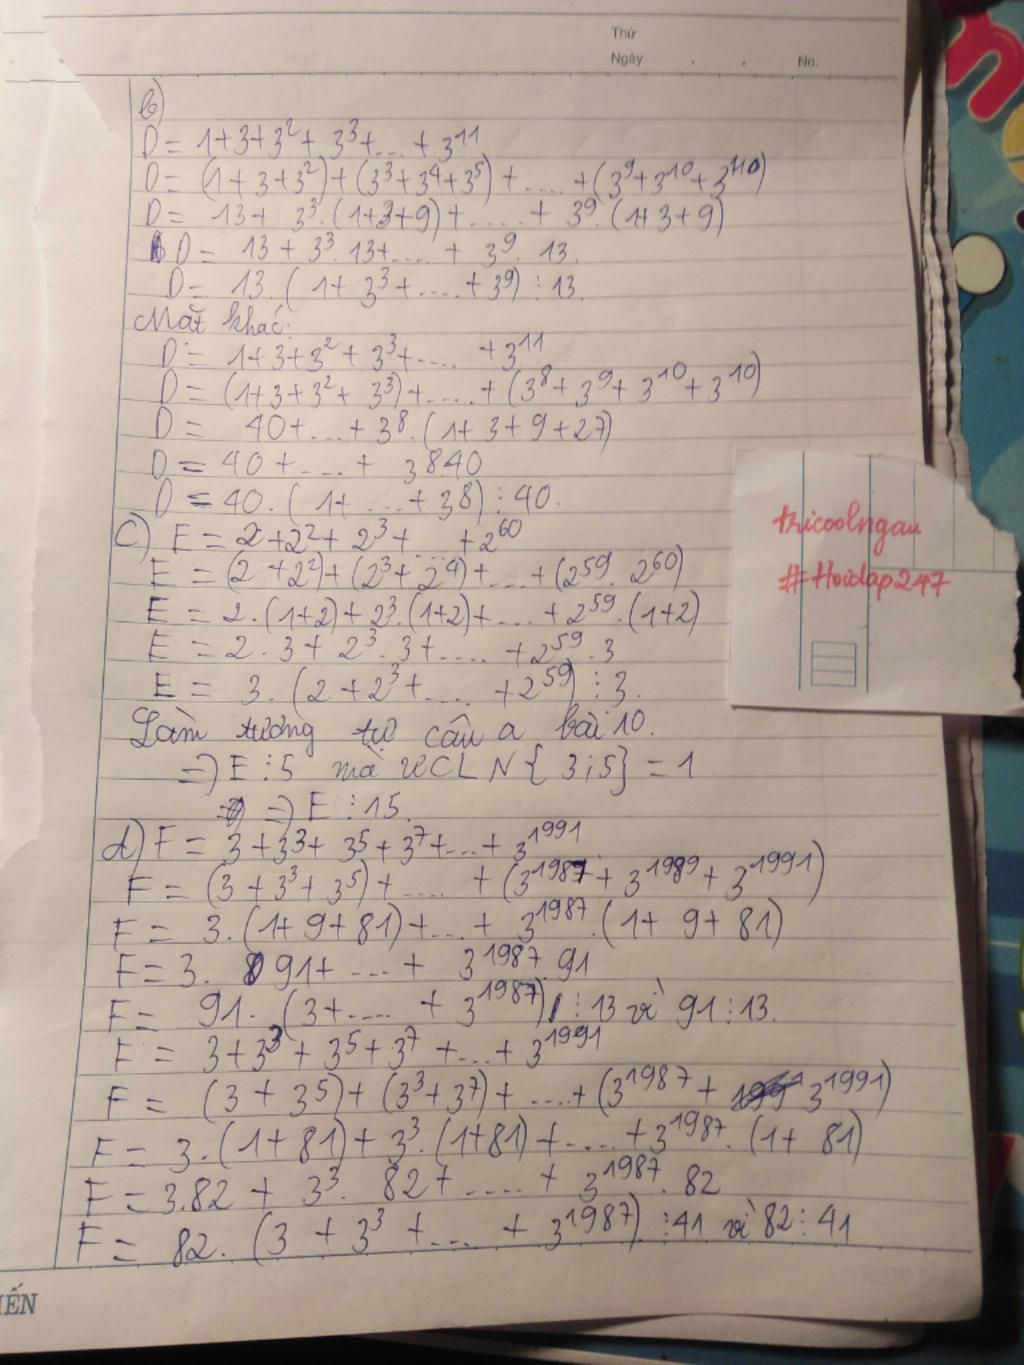 Thứ
Ngày . . No.
b)
D = 1+3+3²+ 3³+....+ 3¹¹
D = (1+3+3²)+(3³+3⁴+3⁵) + .... +(3⁹+3¹⁰+3¹¹⁰)
D = 13+ 3³.(1+3+9)+.....+ 3⁹.(1+3+9)
D = 13 + 3³.13+.... + 3⁹. 13.
D = 13.( 1+ 3³+....+3⁹) ⋮ 13.
Mặt khác:
D = 1+3+3²+ 3³+..... +3¹¹
D = (1+3+3²+ 3³)+.....+(3⁸+3⁹+3¹⁰+3¹⁰)
D = 40+....+3⁸.(1+3+9+27)
D = 40+....+ 3840
D = 40.( 1+ ....+38) ⋮ 40.
C) E = 2+2²+ 2³+ ... +2⁶⁰
E = (2+2²)+(2³+2⁴)+....+(2⁵⁹. 2⁶⁰)
E = 2.(1+2)+2³.(1+2)+....+2⁵⁹.(1+2)
E = 2.3+ 2³.3+.... +2⁵⁹.3
E = 3. (2+2³+.... +2⁵⁹) ⋮ 3.
Làm tương tự câu a bài 10.
=) E ⋮ 5 mà ƯCLN{ 3;5} = 1
=) E ⋮ 15.
d) F = 3+3³+ 3⁵+3⁷+....+ 3¹⁹⁹¹
F = (3+3³+3⁵)+ ..... + (3¹⁹⁸⁷+ 3¹⁹⁸⁹+3¹⁹⁹¹)
F = 3.(1+9+81)+....+ 3¹⁹⁸⁷.(1+ 9+ 81)
F = 3. 91+ ....+ 3¹⁹⁸⁷.91
F = 91. (3+.... + 3¹⁹⁸⁷) ⋮ 13 vì 91 ⋮ 13.
F = 3+3³+3⁵+3⁷ +....+ 3¹⁹⁹¹
F = (3+3⁵)+(3³+3⁷)+ ....+(3¹⁹⁸⁷+ 3¹⁹⁹¹)
F = 3.(1+81)+3³.(1+81)+.....+3¹⁹⁸⁷.(1+ 81)
F = 3.82 + 3³. 82+ ..... + 3¹⁹⁸⁷.82
F = 82. (3 + 3³ +.... + 3¹⁹⁸⁷) ⋮ 41 vì 82 ⋮ 41
tricoolngau
#Hoidap247
IẾN